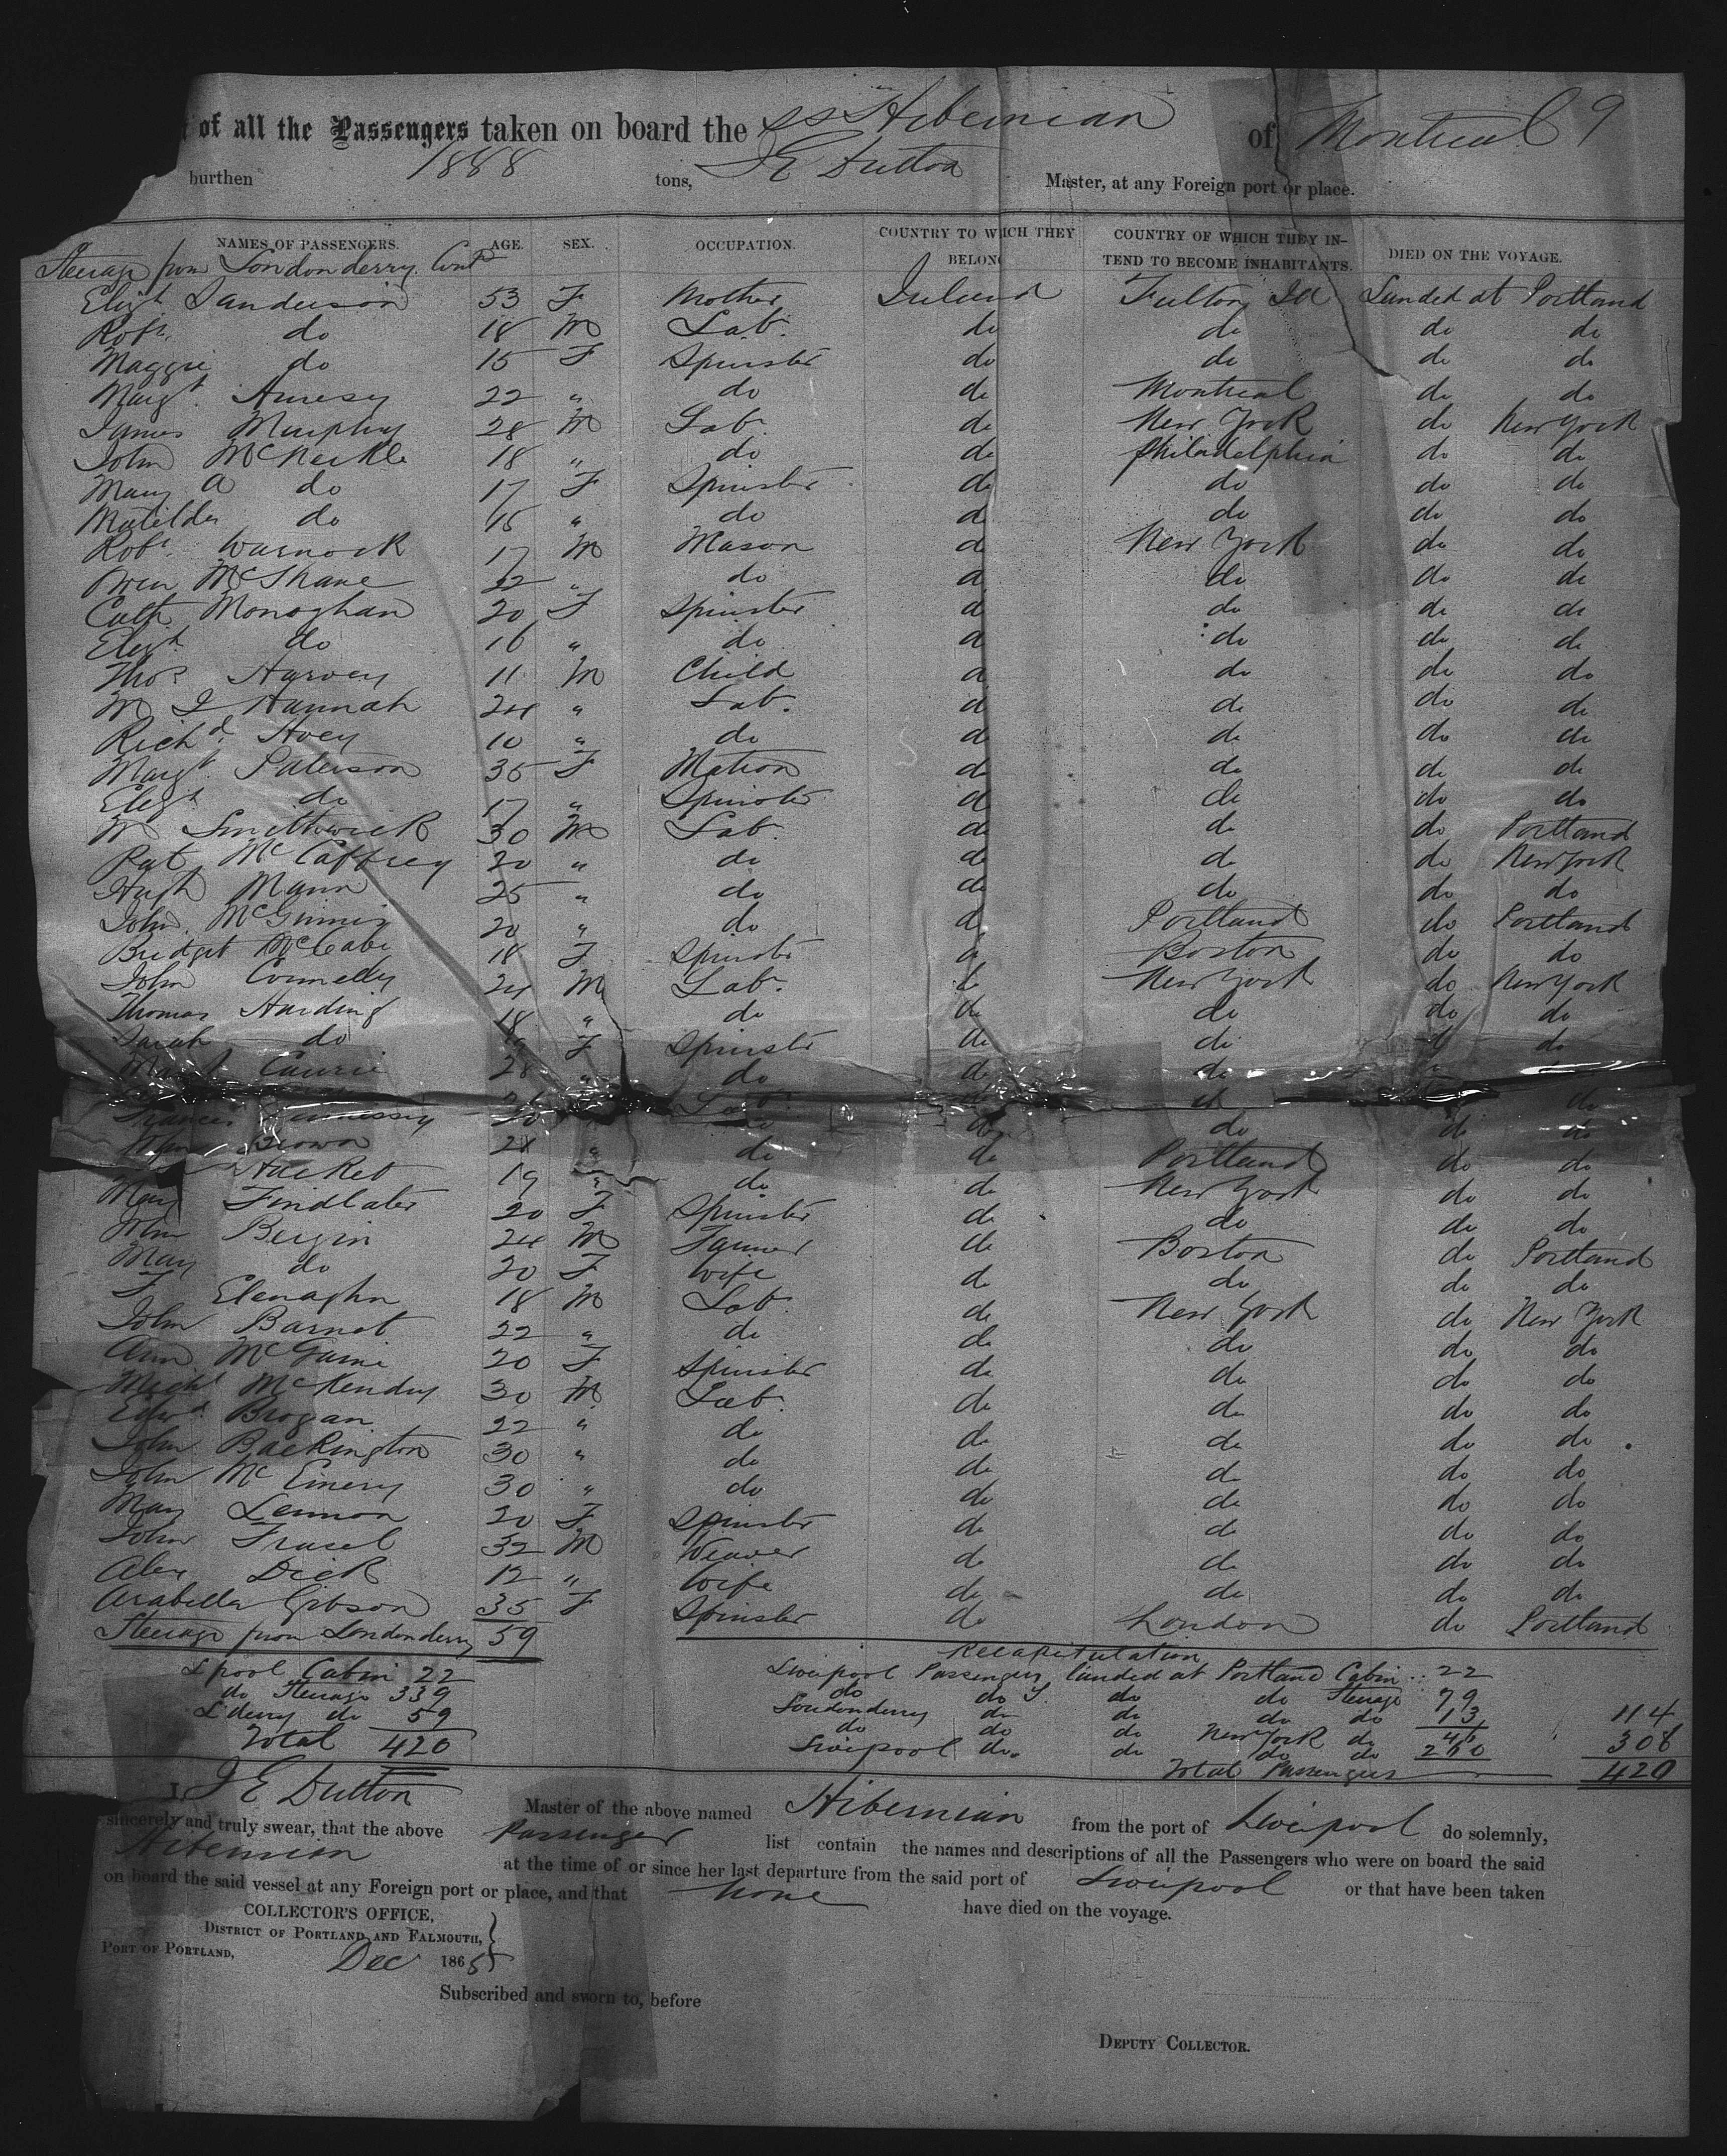 of all the Passengers taken on board the SS Hibernian of Montreal 9
burthen 1888 tons, J E Dutton Master, at any Foreign port or place.
NAMES OF PASSENGERS. AGE. SEX. OCCUPATION. COUNTRY TO WHICH THEY BELONG COUNTRY OF WHICH THEY INTEND TO BECOME INHABITANTS. DIED ON THE VOYAGE.
Steerage from Londonderry Contd
Elizt Sanderson 53 F Mother Ireland Fulton Landed at Portland
Robt. do 18 M Lab. do do do do
Maggie do 15 F Spinster do do do do
Margt. 22 " do do Montreal do do
James Murphy 28 M Lab. do New York do New York
John 18 " do do Philadelphia do do
Mary A do 17 F Spinster do do do do
Matilda do 15 " do do do do do
Robt. Warnock 17 M Mason do New York do do
Owen McShane 22 " do do do do do
Cath Monaghan 20 F Spinster do do do do
Elizt. do 16 " do do do do do
Thos. Harvey 11 M Child do do do do
M J Hannah 24 " Lab. do do do do
Richd. Hoey 10 " do do do do do
Margt. Paterson 35 F Matron do do do do
Elizt. do 17 " Spinster do do do do
M Smithwick 30 M Lab. do do do Portland
Pat McCaffrey 20 " do do do do New York
Hugh Mann 25 " do do do do do
John McGinnis 20 " do do Portland do Portland
Bridget McCabe 18 F Spinster do Boston do do
John Connelly 24 M Lab. do New York do New York
Thomas Harding 18 " do do do do do
Sarah do F Spinster do do do
28 " do do do
Lab. do
Francis 20 do do do do do
Brown 24 " do do Portland do do
Hacket 19 " do do New York do do
Mary Findlater 20 F Spinster do do do do
Wm Bergin 24 M do Boston do Portland
Mary do 20 F Wife do do do do
F Elenaghn 18 M Lab. do New York do New York
John Barnet 22 " do do do do do
Ann 20 F Spinster do do do do
Michl McKendry 30 M Lab. do do do do
Edwd. Brogan 22 " do do do do do
John Backington 30 " do do do do do
John McEinery 30 " do do do do do
Mary Lennon 20 F Spinster do do do do
John 32 M Weaver do do do do
Alex Dick 12 " Wife do do do do
Arabella Gibson 35 F Spinster do London do Portland
Steerage from Londonderry 59
Recapitulation
Lpool Cabin 22 Liverpool Passengers landed at Portland Cabin 22
do Steerage 339 do do do do Steerage 79
Lderry do 59 Londonderry do do do do 13 114
Total 420 do do do New York do 46
Liverpool do do do do 260 306
Total Passengers 420
I, J E Dutton Master of the above named Hibernian from the port of Liverpool do solemnly,
sincerely and truly swear, that the above Passenger list contain the names and descriptions of all the Passengers who were on board the said
Hibernian at the time of or since her last departure from the said port of Liverpool or that have been taken
on board the said vessel at any Foreign port or place, and that None have died on the voyage.
COLLECTOR'S OFFICE,
DISTRICT OF PORTLAND AND FALMOUTH,
PORT OF PORTLAND, Dec 1865
Subscribed and sworn to, before
DEPUTY COLLECTOR.